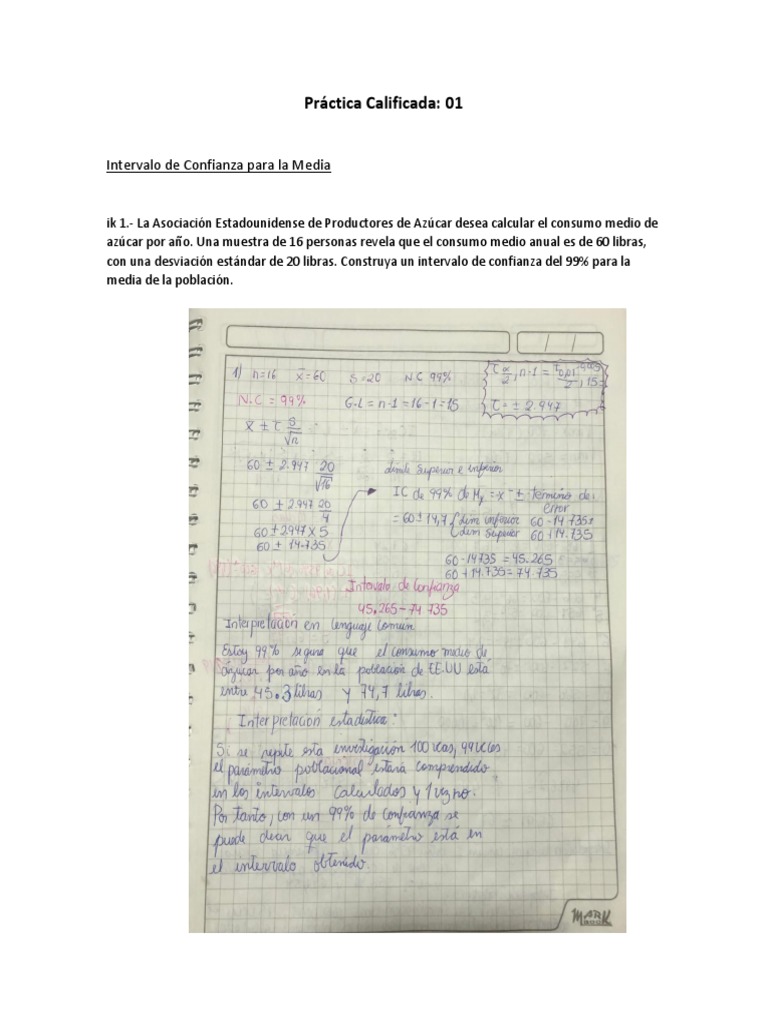 Práctica Calificada: 01
Intervalo de Confianza para la Media
ik 1.- La Asociación Estadounidense de Productores de Azúcar desea calcular el consumo medio de
azúcar por año. Una muestra de 16 personas revela que el consumo medio anual es de 60 libras,
con una desviación estándar de 20 libras. Construya un intervalo de confianza del 99% para la
media de la población.
1) n=16 x̄=60 S=20 N.C 99%
N.C = 99% G.L = n-1 = 16-1 = 15
τ = ± 2.947
x̄ ± τ S/√n
60 ± 2.947 20/√16
60 ± 2.947 20/4
60 ± 2.947 x 5
60 ± 14.735
límite superior e inferior
IC de 99% de = x̄ ± termino de
error
= 60 ± 14,7 inferior 60-14.735
superior 60+14.735
60-14.735 = 45.265
60+14.735 = 74.735
Intervalo de Confianza
45.265-74.735
Interpretación en lenguaje común
Estoy 99% segura que el consumo medio de
azúcar por año en la población de EE.UU está
entre 45.3 libras y 74,7 libras.
Interpretación estadística:
Si se repite esta investigación 100 veces, 99 veces
el parámetro poblacional estará comprendido
en los intervalos calculados y 1 vez no.
Por tanto, con un 99% de confianza se
puede decir que el parámetro está en
el intervalo obtenido.
MARK